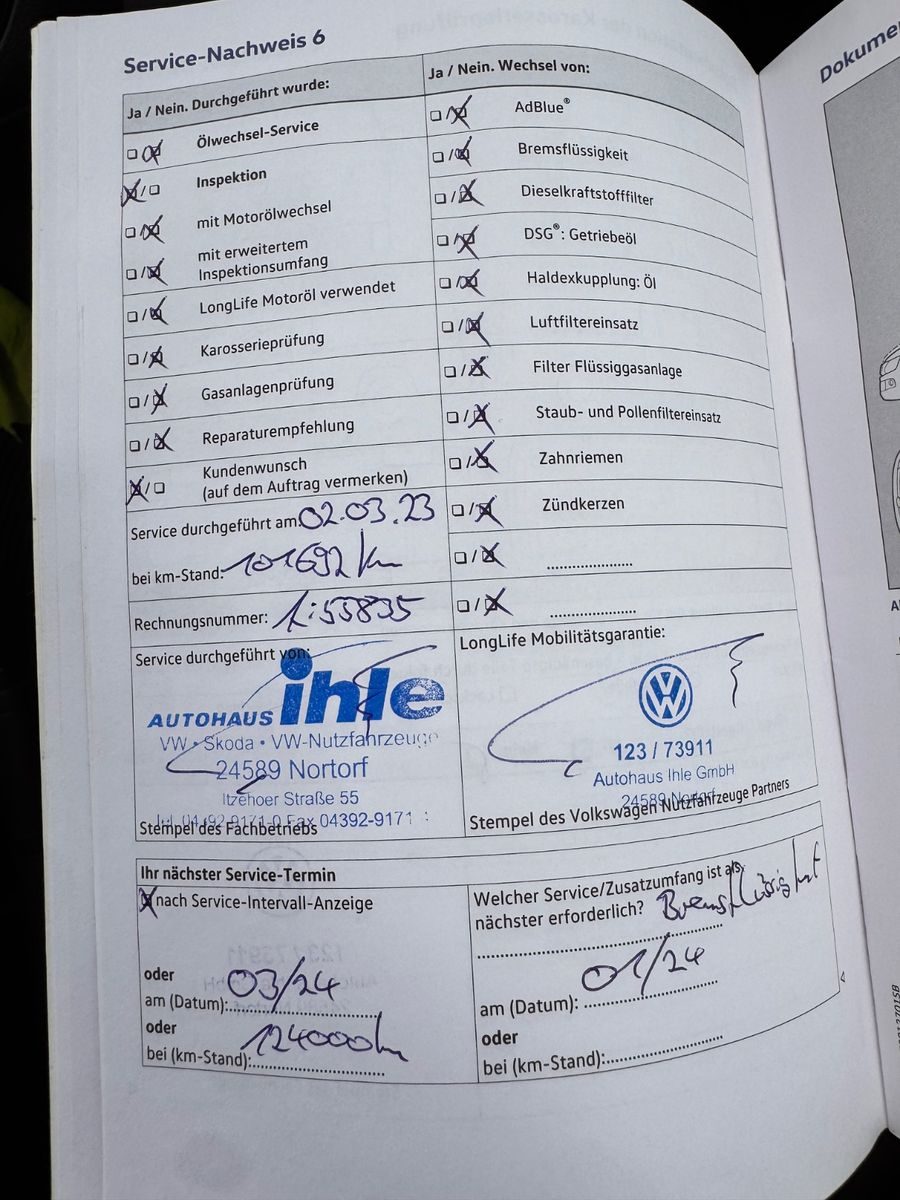 Service-Nachweis 6
Ja / Nein. Durchgeführt wurde:
Ölwechsel-Service
Inspektion
mit Motorölwechsel
mit erweitertem
Inspektionsumfang
LongLife Motoröl verwendet
Karosserieprüfung
Gasanlagenprüfung
Reparaturempfehlung
Kundenwunsch
(auf dem Auftrag vermerken)
Service durchgeführt am: 02.03.23
bei km-Stand: 101692 km
Rechnungsnummer: 1:55835
Service durchgeführt von:
AUTOHAUS ihle
VW • Skoda • VW-Nutzfahrzeuge
24589 Nortorf
Itzehoer Straße 55
Fax 04392-9171
Stempel des Fachbetriebs
Ja / Nein. Wechsel von:
AdBlue®
Bremsflüssigkeit
Dieselkraftstofffilter
DSG®: Getriebeöl
Haldexkupplung: Öl
Luftfiltereinsatz
Filter Flüssiggasanlage
Staub- und Pollenfiltereinsatz
Zahnriemen
Zündkerzen
LongLife Mobilitätsgarantie:
VW
123 / 73911
Autohaus Ihle GmbH
24589 Nortorf
Stempel des Volkswagen Nutzfahrzeuge Partners
Ihr nächster Service-Termin
nach Service-Intervall-Anzeige
oder
am (Datum): 03/24
oder
bei (km-Stand): 124000 km
Welcher Service/Zusatzumfang ist als
nächster erforderlich? Bremsflüssigkeit
am (Datum): 01/24
oder
bei (km-Stand):